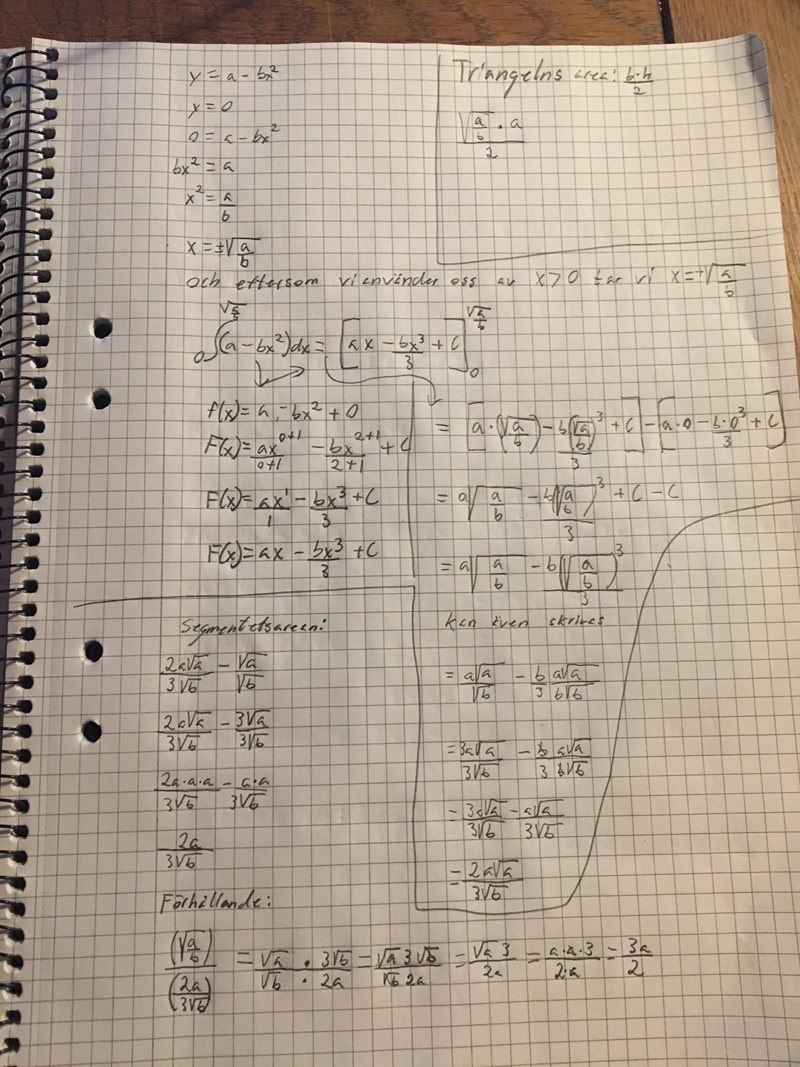 y = a - bx²
y = 0
0 = a - bx²
bx² = a
x² = a/b
x = ±√(a/b)
Triangelns area: b·h/2
(√(a/b) · a)/2
Och eftersom vi använder oss av x>0 tar vi x=+√(a/b)
₀∫^√(a/b) (a - bx²)dx = [ax - bx³/3 + C]₀^√(a/b)
f(x) = a - bx² + 0
F(x) = ax⁰⁺¹/(0+1) - bx²⁺¹/(2+1) + C
F(x) = ax¹/1 - bx³/3 + C
F(x) = ax - bx³/3 + C
= [a·(√(a/b)) - b(√(a/b))³/3 + C] - [a·0 - b·0³/3 + C]
= a√(a/b) - b(√(a/b))³/3 + C - C
= a√(a/b) - b(√(a/b))³/3
kan även skrivas
= a√a/√b - b/3 a√a/b√b
= 3a√a/3√b - b a√a/3 b√b
= 3a√a/3√b - a√a/3√b
= 2a√a/3√b
Segmentetsarean:
2a√a/3√b - √a/√b
2a√a/3√b - 3√a/3√b
2a·a·a/3√b - a·a/3√b
2a/3√b
Förhållande:
(√(a/b))/(2a/3√b) = √a/√b · 3√b/2a = √a 3√b/√b 2a = √a 3/2a = a·a·3/2·a = 3a/2